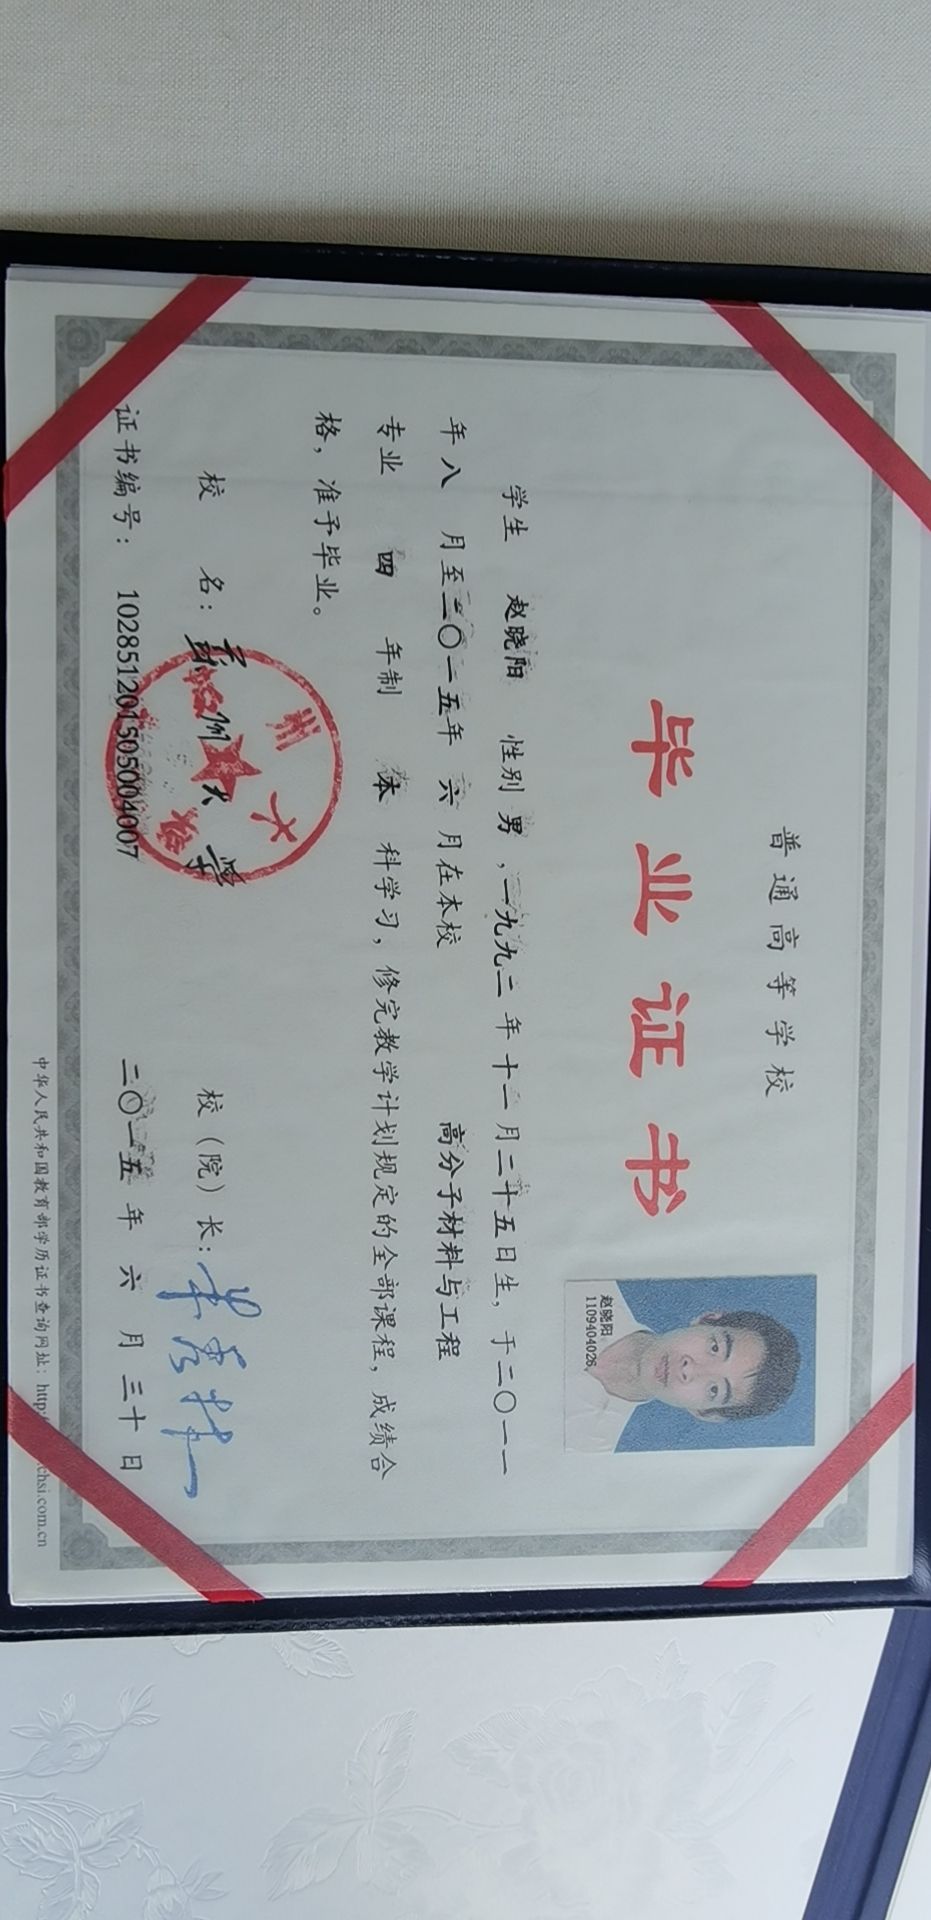 普通高等学校
毕业证书
赵晓阳
1109404026
学生 赵晓阳 性别 男，一九九二年十二月二十五日生，于二〇一一
年八月至二〇一五年六月在本校 高分子材料与工程
专业 四 年制 本 科学习，修完教学计划规定的全部课程，成绩合
格，准予毕业。
校 名：苏州大学 校（院）长：
证书编号：102851201505004007 二〇一五年六月三十日
中华人民共和国教育部学历证书查询网址：http:/ chsi.com.cn